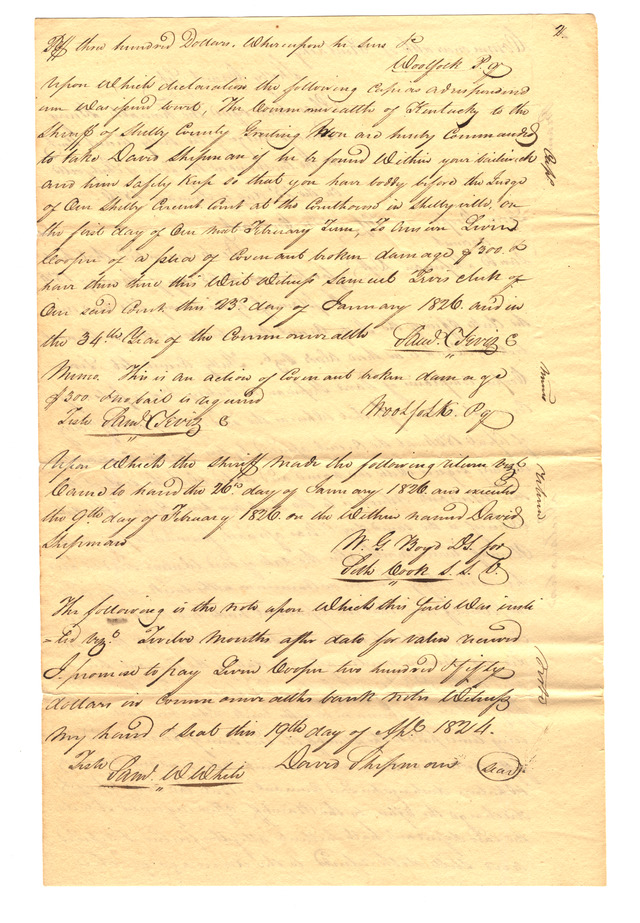 2
Pff three hundred Dollars. Whereupon he sues &c
Woolfolk P. q
Upon Which declaration the following Capias ad respondend
um Was issued towit, The Commonwealth of Kentucky to the
Sheriff of Shelby County Greeting You are hereby Commanded
to take David Shipman if he be found Within your bailiwick
and him Safely Keep so that you have boddy before the Judge
of Our Shelby Circuit Court at the Courthouse in Shelbyville, on
the first day of Our next February Term, To Answer Liven
Cooper of a plea of Covenant broken damage $300. &
have then there this Writ Witness Samuel Tevis clerk of
Our said Court this 23d day of January 1826 and in
the 34th Year of the Commonwealth Saml. Tevis C
Memo. This is an action of Covenant broken damage
$300 & no bail is required Woolfolk. P q
Teste Saml. Tevis C
Upon Which the sheriff made the following return viz
Came to hand the 26th day of January 1826. and executed
the 9th day of February 1826 on the Within named David
Shipman
W. G. Boyd DS. for
Seth Cook S. S. C.
The following is the note upon Which this Suit Was insti
=ted viz. Twelve months after date for value received
I promise to pay Liven Cooper two hundred & fifty
dollars in Commonwealths bank notes Witness
my hand & Seal this 19th day of Apl. 1824.
Teste Saml. W White David Shipman Seal
Memo
Return
Note